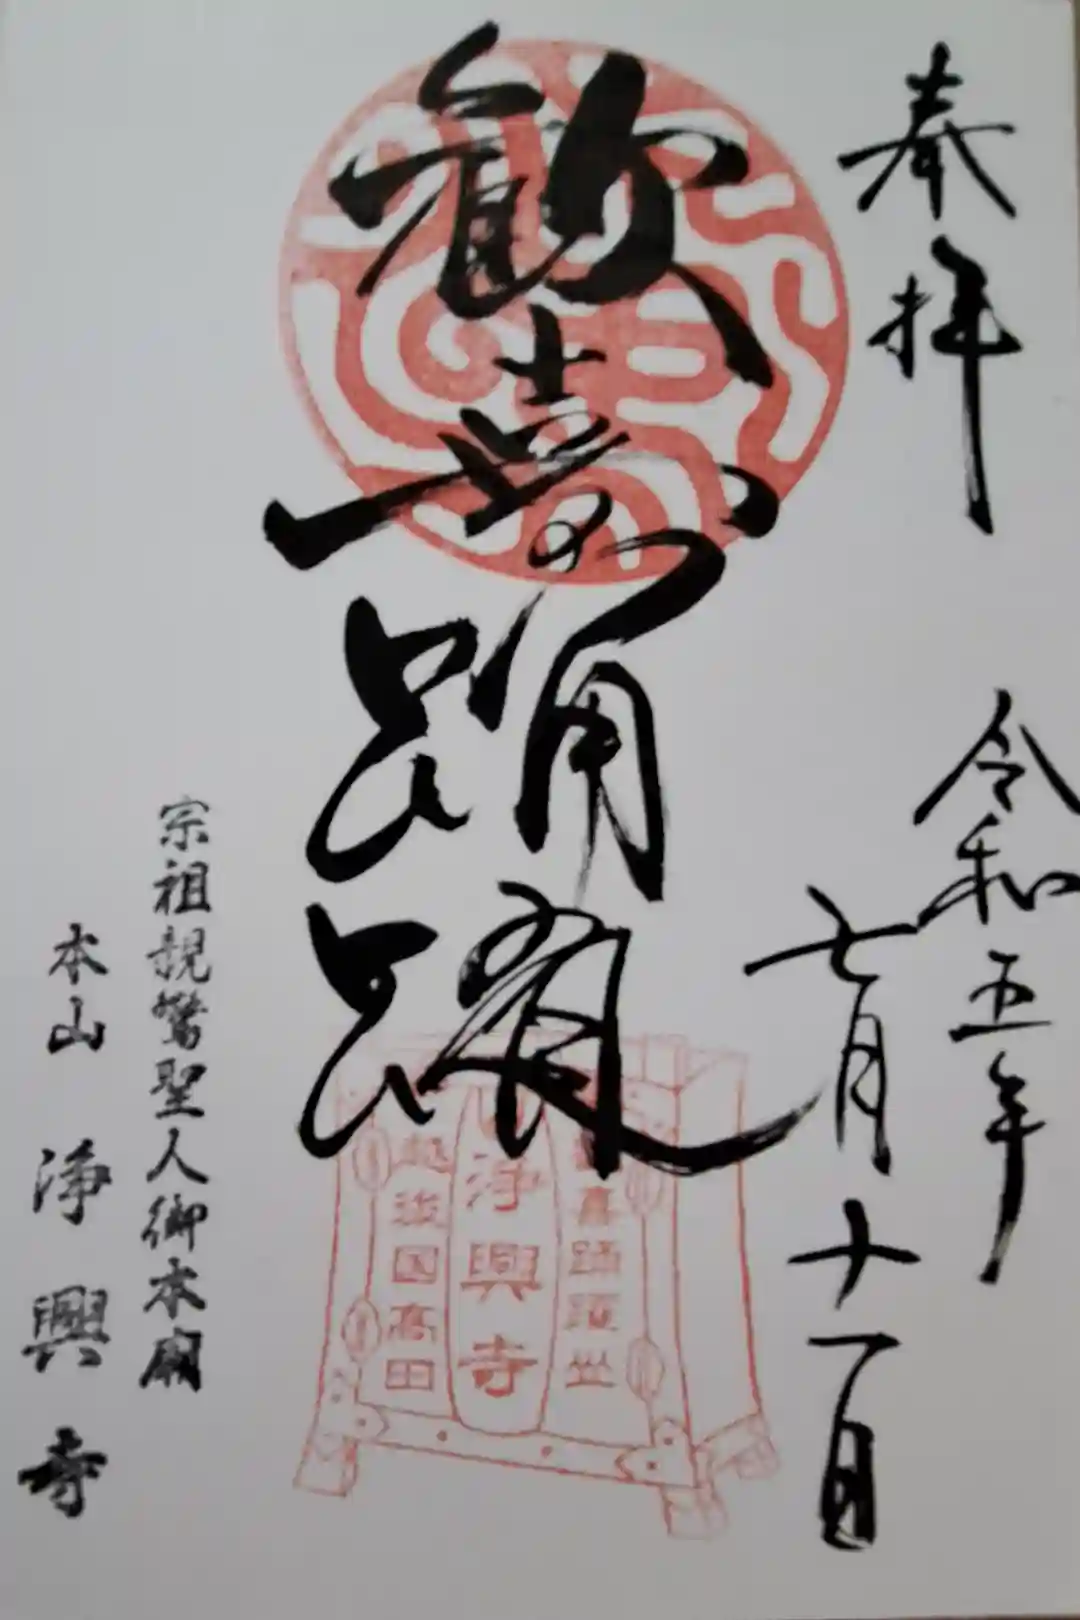 奉拝
令和五年
七月十一日
歓喜踊躍
喜踊躍
浄興寺
越後国高田
宗祖親鸞聖人御本廟
本山 浄興寺